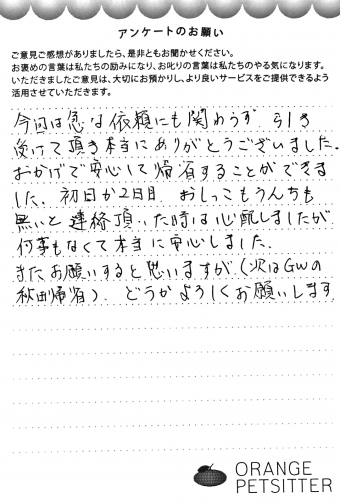 アンケートのお願い
ご意見ご感想がありましたら、是非ともお聞かせください。
お褒めの言葉は私たちの励みになり、お叱りの言葉は私たちのやる気になります。
いただきましたご意見は、大切にお預かりし、より良いサービスをご提供できるよう
活用させていただきます。
今回は急な依頼にも関わらず、引き
受けて頂き本当にありがとうございました。
おかげで安心して帰省することができま
した。初日か2日目、おしっこもうんちも
無いと連絡頂いた時は心配しましたが、
何事もなくて本当に安心しました。
またお願いすると思いますが、(次はGWの
秋田帰省)、どうかよろしくお願いします。
ORANGE
PETSITTER